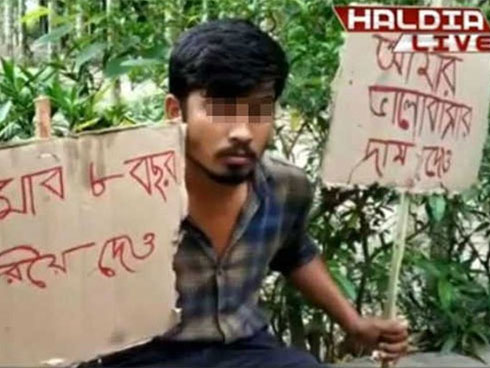 HALDIA
LIVE
আমার
ভালোবাসার
দাম দেও
মার ৮ বছর
রিয়ে দেও